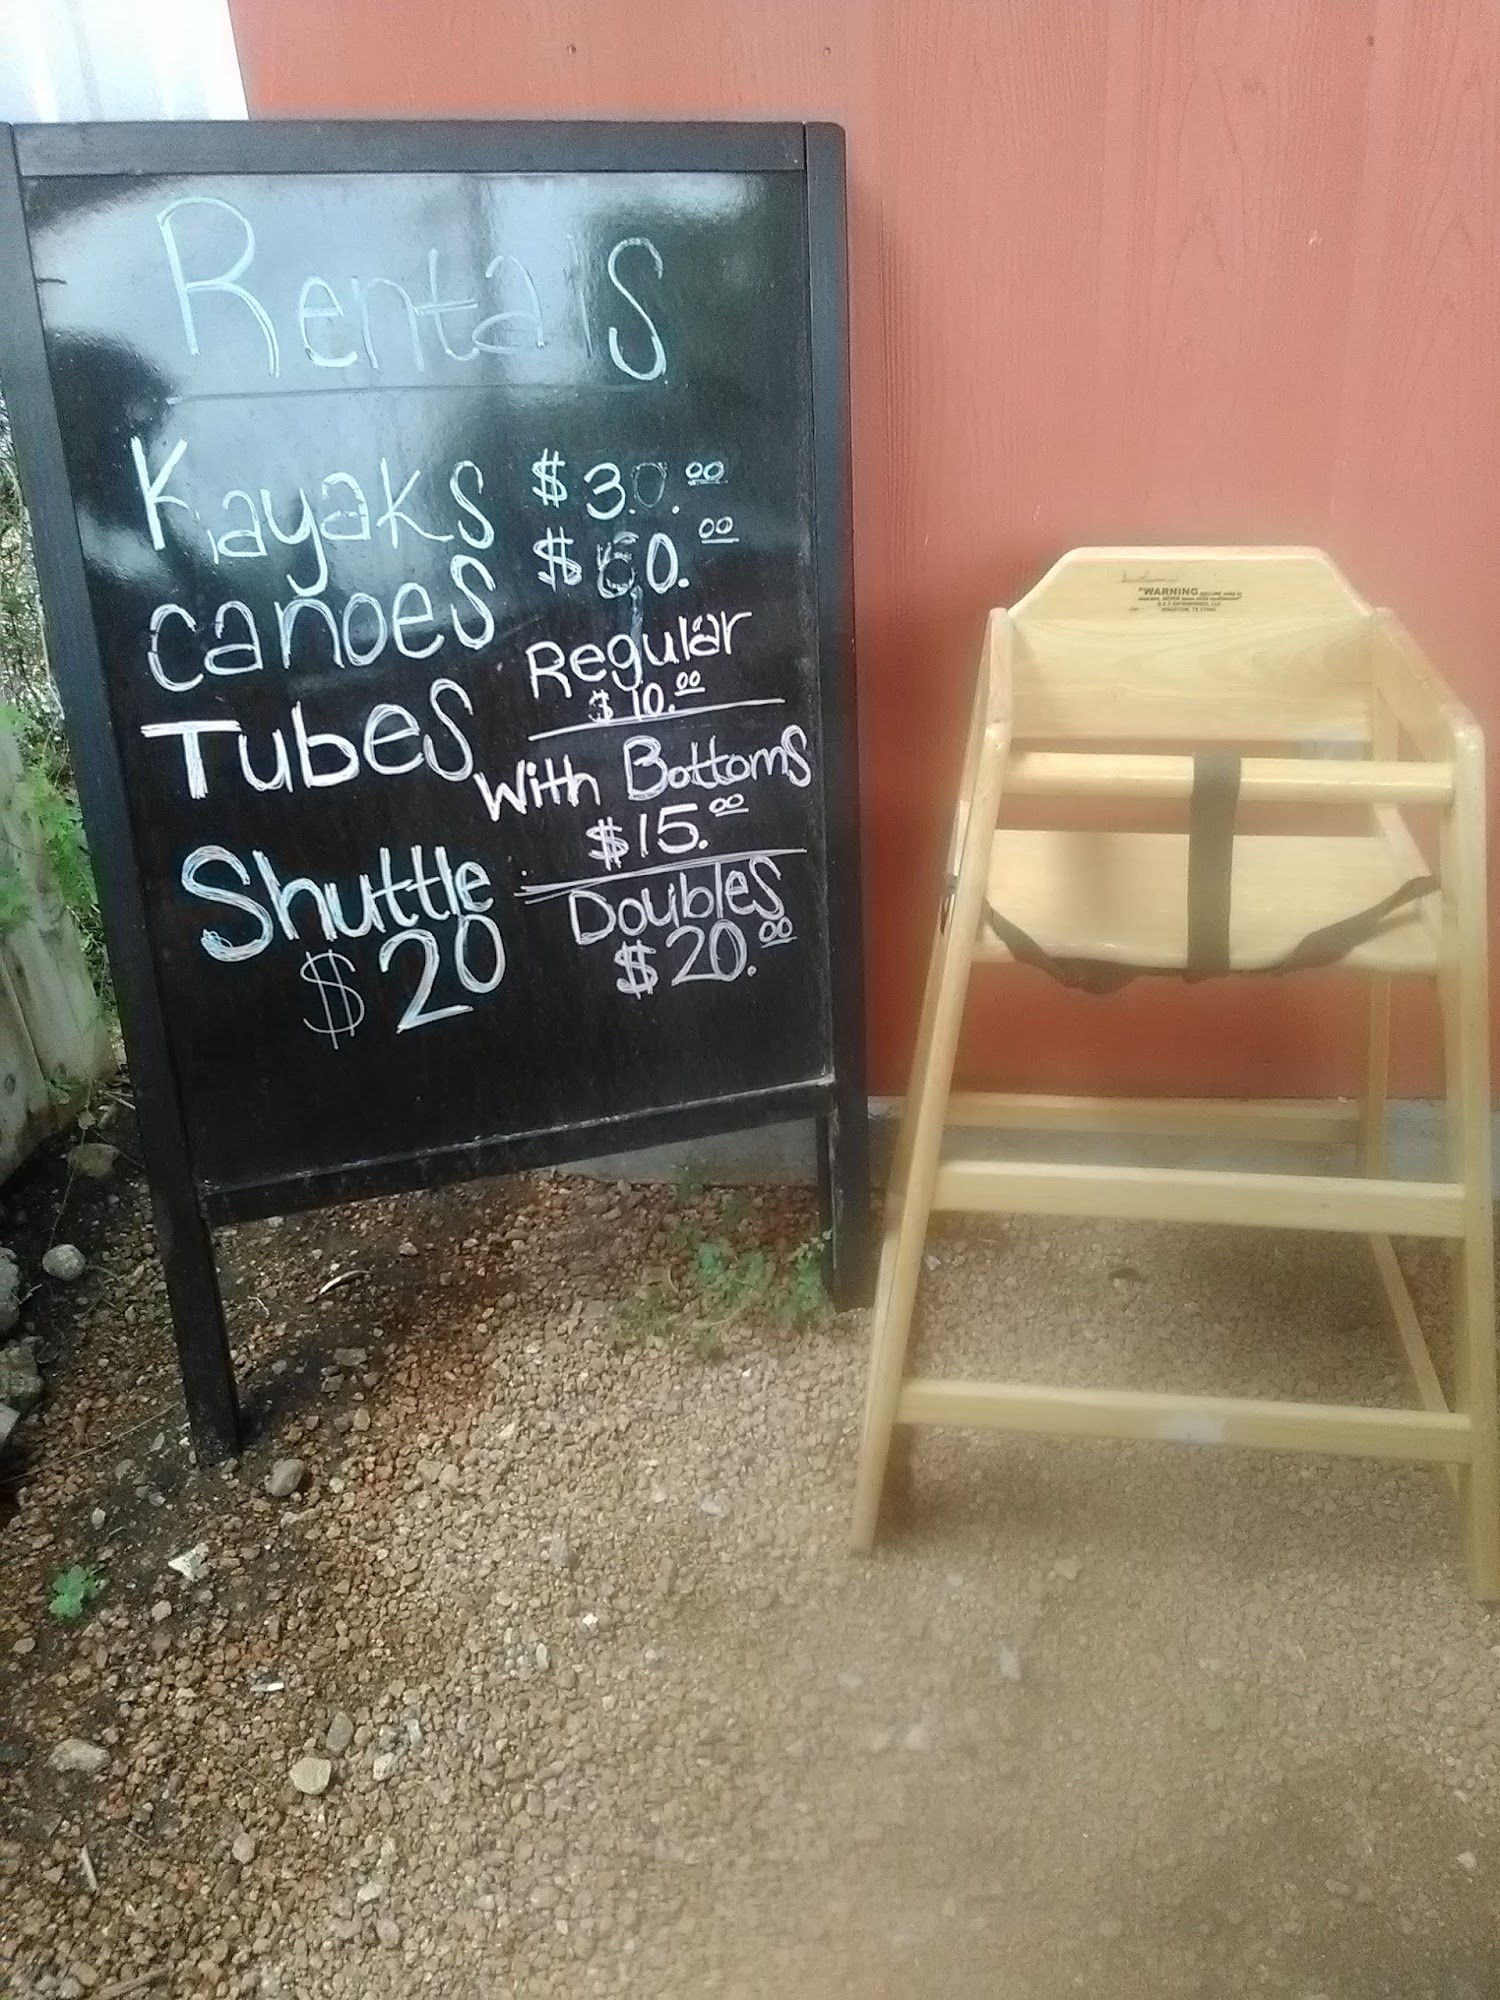 Rentals
Kayaks $30.00
Canoes $60.00
Tubes
Regular
$10.00
With Bottoms
$15.00
Doubles
$20.00
Shuttle
$20
"WARNING